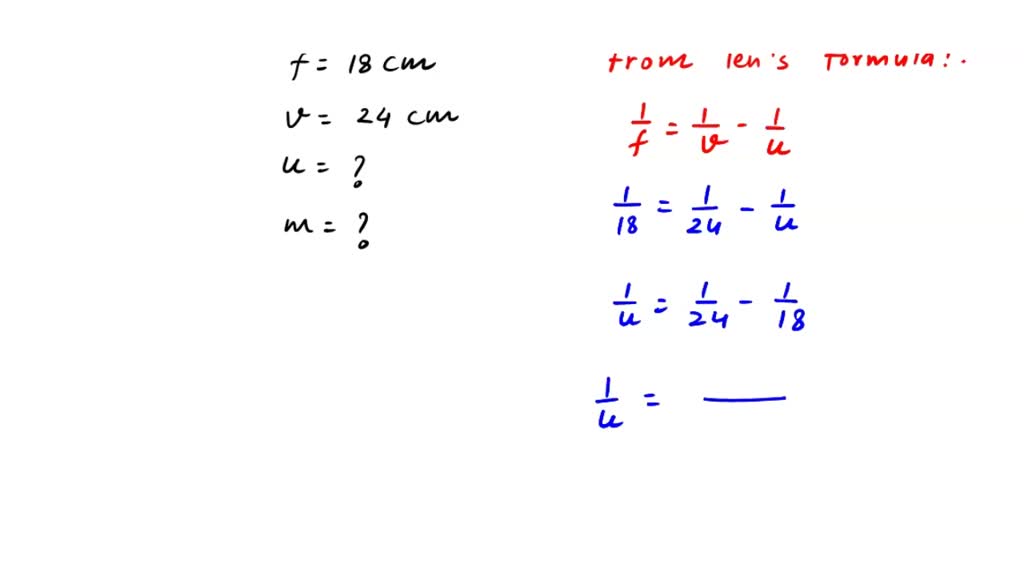 f = 18 cm
v = 24 cm
u = ?
m = ?
from len's formula:.
1/f = 1/v - 1/u
1/18 = 1/24 - 1/u
1/u = 1/24 - 1/18
1/u = —